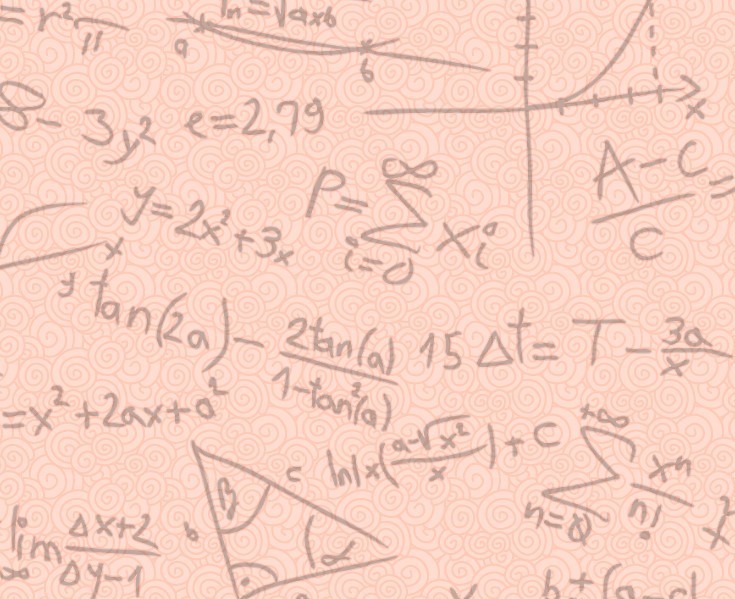 = r²/11
ln = √axb
a
b
x
8 - 3y² e=2,79
A-C/C =
y=2x²+3x
P= ∑ i=0 ∞ xᵢⁱ
x
y
tan(2a) - 2tan(a)/1-tan²(a)
15 Δt= T - 3a/x
=x²+2ax+a²
ln|x(a-√x²/x)+C
+∞ ∑ n=0 xⁿ/n!
x²
β
c
b
α
lim Δx+2/Δy-1
∞